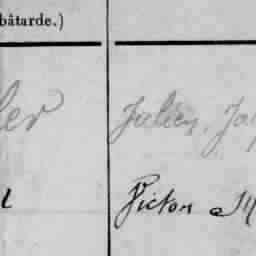 bâtarde.)
ler Julien, Jo
Victor M